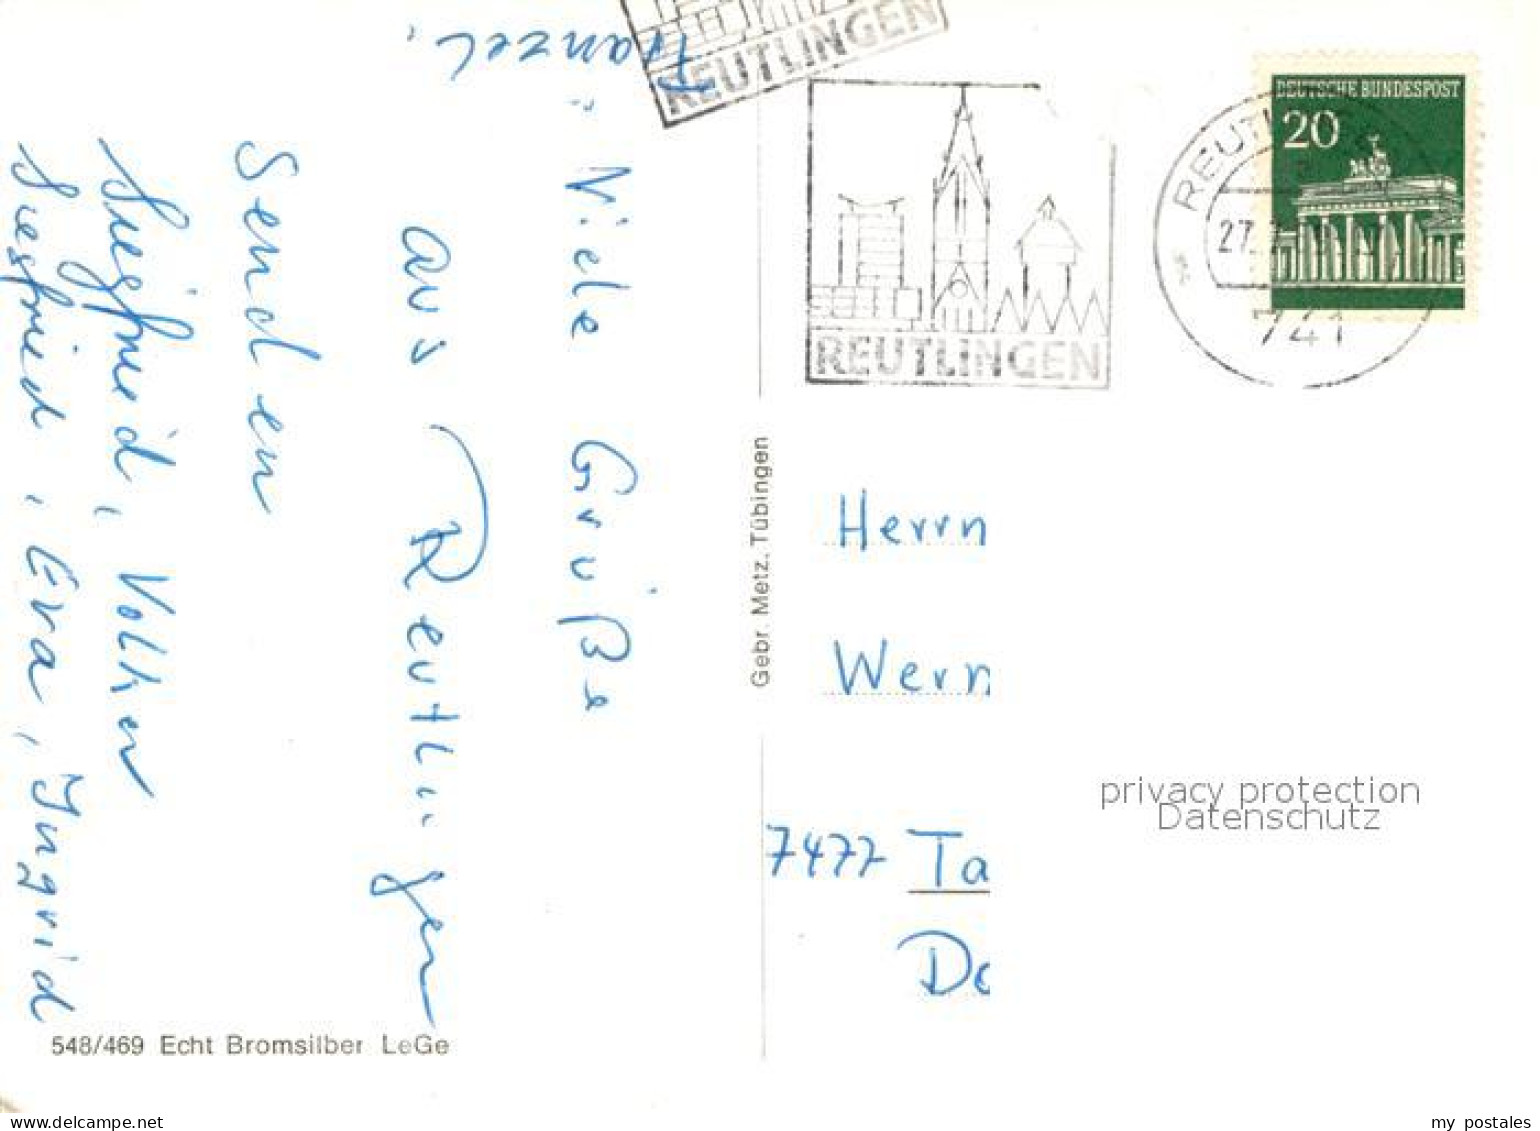 Viele Grüße
aus Reutlingen
senden
Siegfried, Volker
Siegfried, Eva, Ingrid
Franzel.
REUTLINGEN
REUTLINGEN
DEUTSCHE BUNDESPOST
20
741
Gebr. Metz, Tübingen
Herrn
Wern
7477 Ta
privacy protection
Datenschutz
548/469 Echt Bromsilber LeGe
www.delcampe.net
my_postales